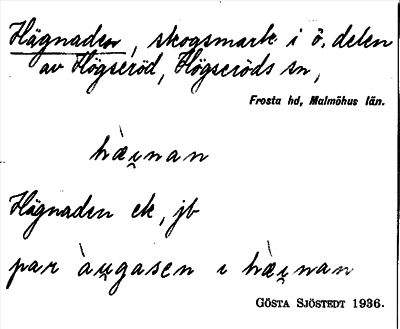 Hägnaden, skogsmark i ö. delen
av Högseröd, Högseröds sn,
Frosta hd, Malmöhus län.
hæ̀i̯nan
Hägnaden ek, jb
par àu̯gasen ı hæ̀i̯nan
GÖSTA SJÖSTEDT 1936.